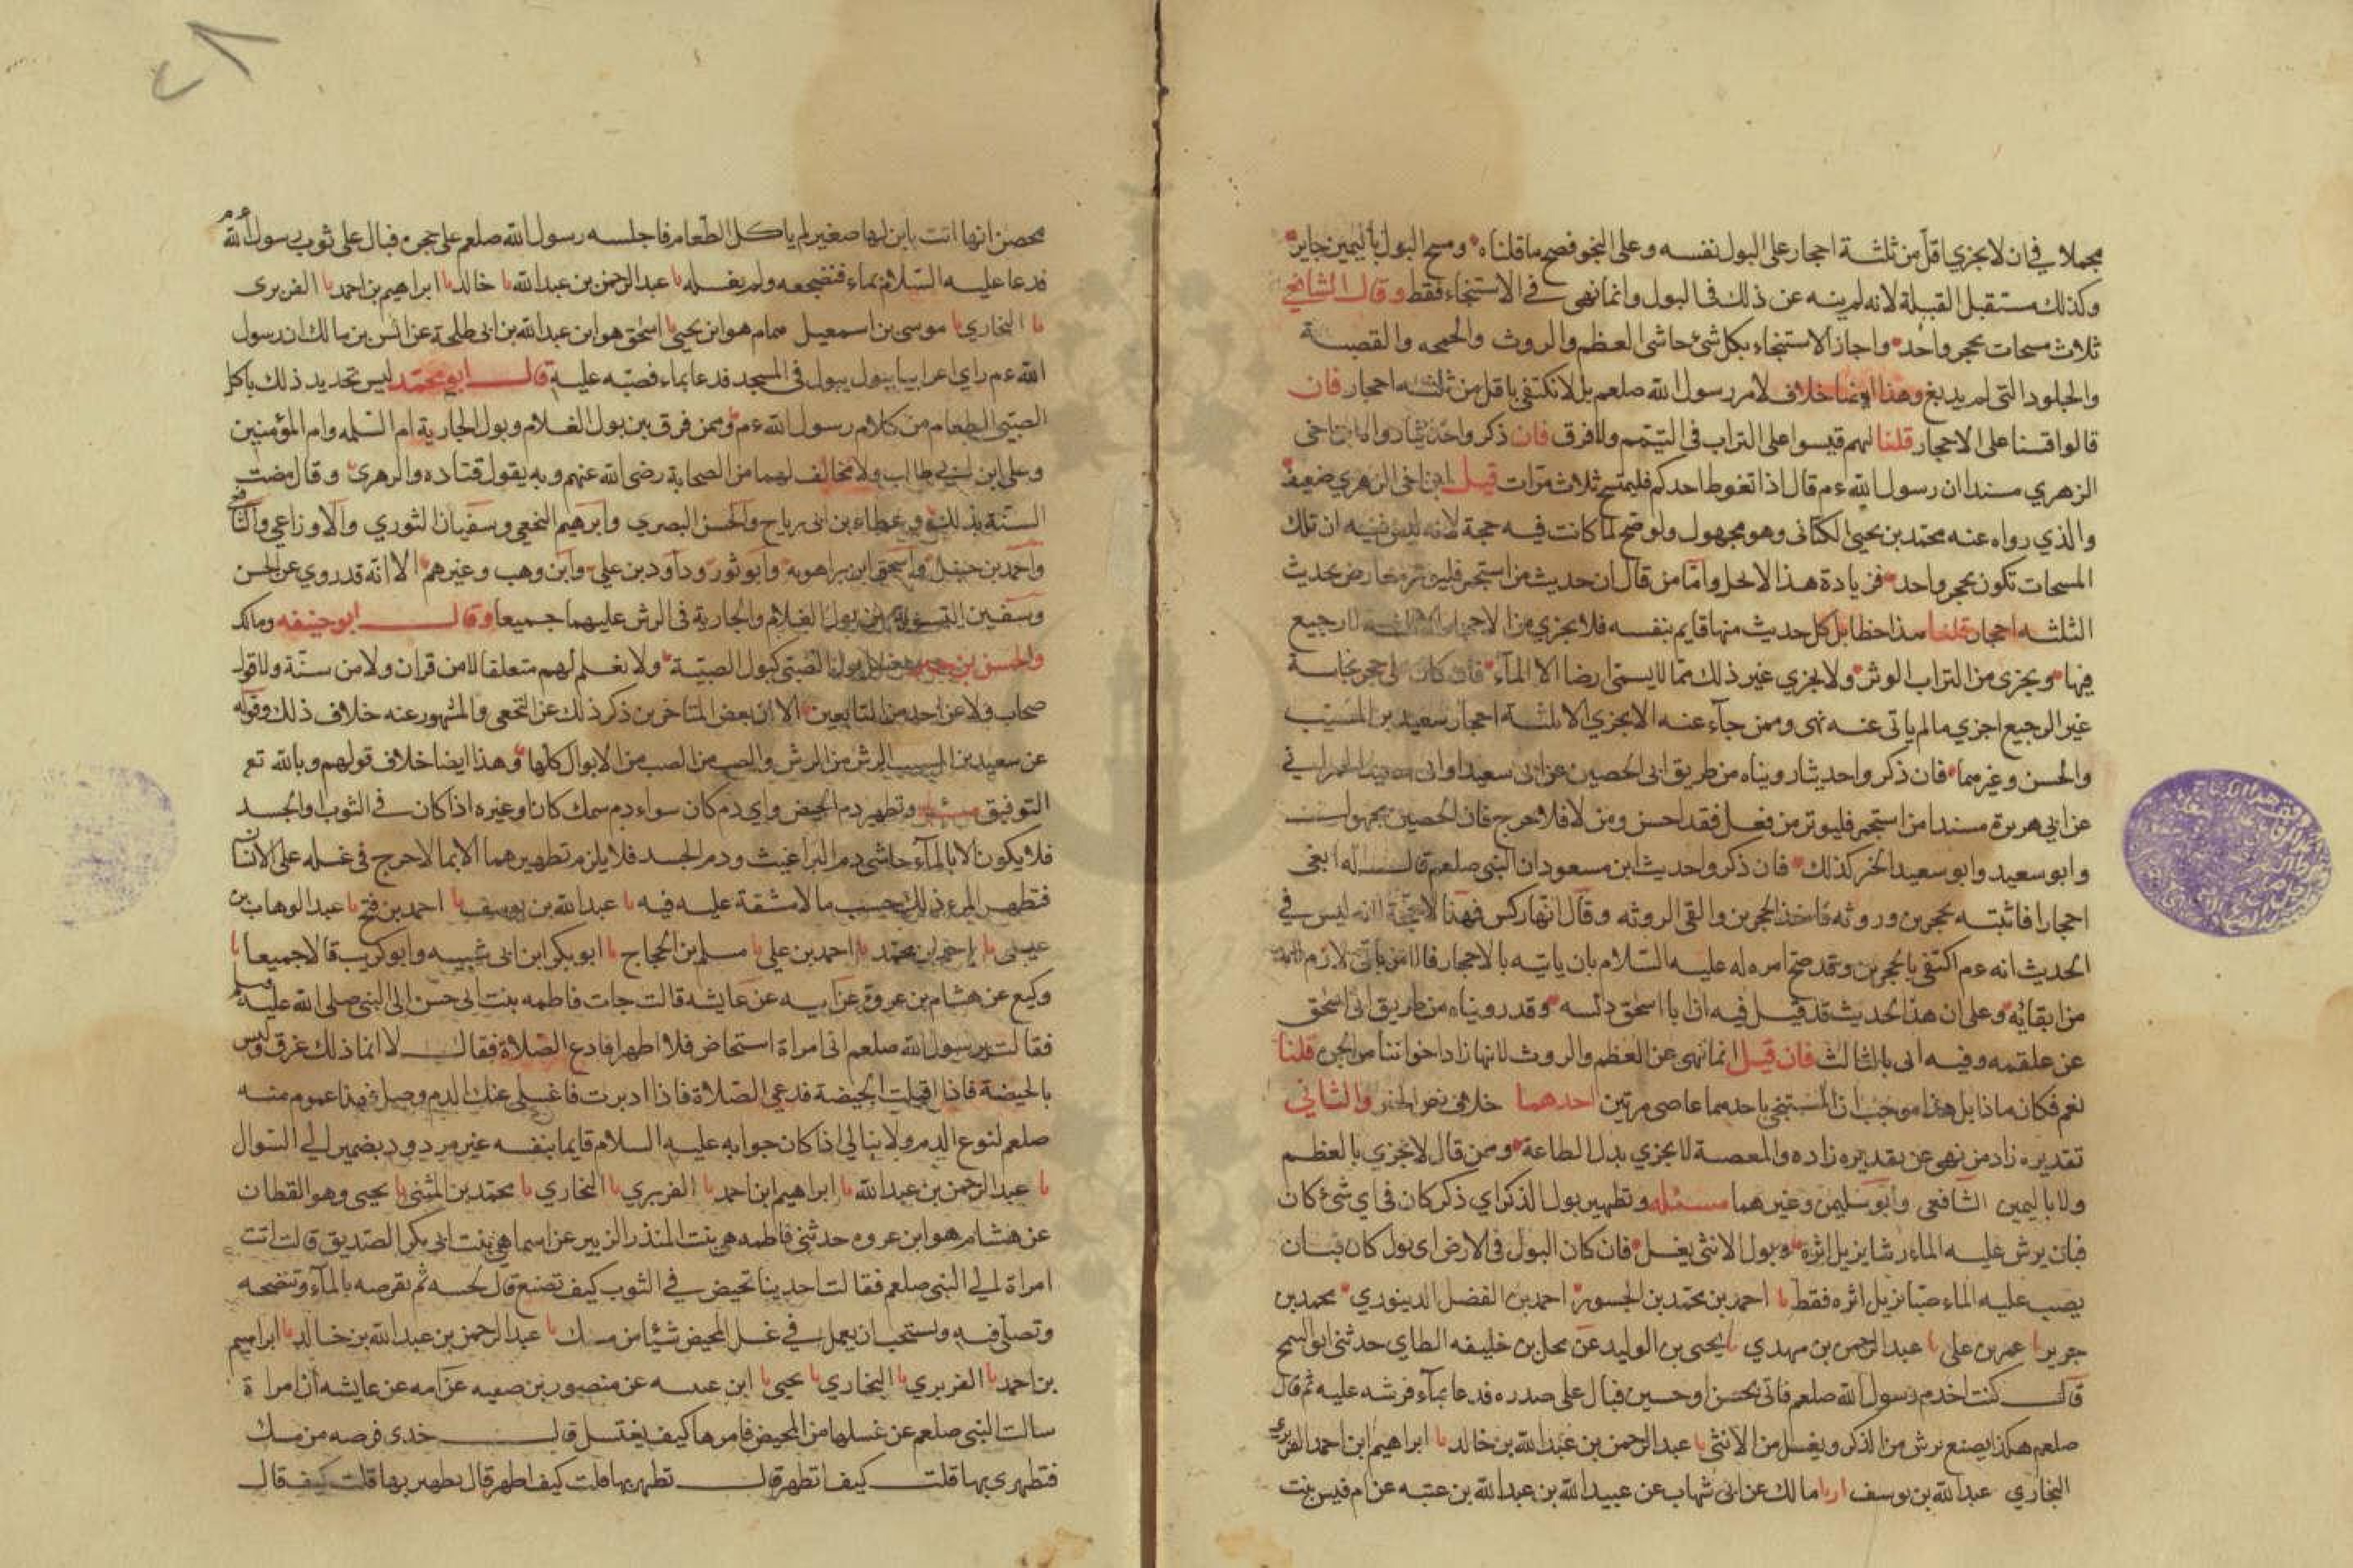 مجملا في ان لا يجزي اقل من ثلثة احجار على البول نفسه وعلى النجو فصح ما قلناه ومسح البول باليمين جايز
وكذلك مستقبل القبلة لانه لم ينه عن ذلك في البول وانما نهى في الاستنجاء فقط وقال الشافعي
ثلاث مسحات بحجر واحد واجاز الاستنجاء بكل شئ حاشى العظم والروث والحممه والقصبة
والجلود التي لم يدبغ وهذا ايضا خلاف لامر رسول الله صلعم بل لا نكتفي باقل من ثلثه احجار فان
قالوا قسنا على الاحجار قلنا لهم قيسوا على التراب في التيمم ولا فرق فان ذكروا حديثا رواه ابن اخي
الزهري مسندا ان رسول الله ءم قال اذا تغوط احدكم فليمتسح ثلاث مرات قيل ابن اخي الزهري ضعيف
والذي رواه عنه محمد بن يحيى الكتانى وهو مجهول ولو صح لما كانت فيه حجة لانه ليس فيه ان تلك
المسحات تكون بحجر واحد فزيادة هذا لا تحل واما من قال ان حديث من استجمر فليوتر معارض بحديث
الثلثه احجار قلنا هذا خطا بل كل حديث منها قايم بنفسه فلا يجزي من الاحجار الا ثلثة لا رجيع
فيها ويجزى من التراب الوتر ولا يجزي غير ذلك مما لا يسمى ارضا الا الماء فان كان على حجر نجاسة
غير الرجيع اجزي مالم ياتى عنه نهى وممن جآء عنه الا يجزي الا ثلثة احجار سعيد بن المسيب
والحسن وغيرهما فان ذكروا حديثا رويناه من طريق ابى الحصين عن ابى سعيد او ابى سعيد الحمراني
عن ابي هريرة مسندا من استجمر فليوتر من فعل فقد احسن ومن لا فلا حرج فان الحصين مجهول
وابو سعيد وابو سعيد الخير كذلك فان ذكروا حديث ابن مسعود ان النبى صلعم قال له ابغى
احجارا فاتيته بحجرين وروثه فاخذ الحجرين والقى الروثه وقال انها ركس فهذا لا حجة لانه ليس في
الحديث انه ءم اكتفى بالحجرين وقد صح امره له عليه السلام بان ياتيه بالاحجار فالامر باق لازم
من ابقايه وعلى ان هذا الحديث قد قيل فيه ان ابا اسحق دلسه وقد رويناه من طريق ابى اسحق
عن علقمه وفيه اتى بالثالث فان قيل انما نهى عن العظم والروث لانها زاد اخواننا من الجن قلنا
نعم فكان ماذا بل هذا موجب ان المستنجى باحدهما عاصى مرتين احدهما خلافه نص الخبر والثاني
تقديره زاد من نهى عن تقديره زاده والمعصة لا يجزي بدل الطاعة وممن قال لا يجزي بالعظم
ولا باليمين الشافعي وابو سليمن وغيرهما مسئله وتطهير بول الذكر اي ذكر كان في اي شئ كان
فبان يرش عليه الماء رشا يزيل اثره وبول الانثى يغسل فان كان البول في الارض اي بول كان فبان
يصب عليه الماء صبا يزيل اثره فقط نا احمد بن محمد بن الجسور احمد بن الفضل الدينوري محمد بن
جرير نا عمر بن على نا عبد الرحمن بن مهدي نا يحيى بن الوليد عن محل بن خليفه الطاي حدثني ابو السمح
قال كنت اخدم رسول الله صلعم فاتى بحسن او حسين فبال على صدره فدعا بماء فرشه عليه ثم قال
صلعم هكذا يصنع نرش من الذكر ويغسل من الانثى نا عبد الرحمن بن عبد الله بن خالد نا ابراهيم ابن احمد الفربري
البخاري عبد الله بن يوسف انا مالك عن ابى شهاب عن عبيد الله بن عبد الله بن عتبه عن ام قيس بنت
محصن انها اتت بابن لها صغير لم ياكل الطعام فاجلسه رسول الله صلعم على حجره فبال على ثوب رسول الله ءم
فدعا عليه السلام بماء فنضحه ولم يغسله نا عبد الرحمن بن عبد الله نا خالد نا ابراهيم بن احمد نا الفربرى
نا البخاري نا موسى بن اسمعيل همام هو ابن يحيى نا اسحق هو ابن عبد الله بن ابى طلحة عن انس بن مالك ان رسول
الله ءم راي اعرابيا يبول يبول في المسجد فدعا بماء فصبه عليه قال ابو محمد ليس تحديد ذلك باكل
الصبي الطعام من كلام رسول الله ءم وممن فرق بين بول الغلام وبول الجارية ام السلمه وام المؤمنين
وعلى ابن ابي طالب ولا مخالف لهما من الصحابة رضى الله عنهم وبه يقول قتاده والزهرى وقال مضت
السنة بذلك وعطاء بن ابى رباح والحسن البصري وابرهيم النخعي وسفيان الثوري والاوزاعي والشافعي
واحمد بن حنبل واسحق ابن براهويه وابو ثور وداود بن علي وابن وهب وغيرهم الا انه قد روي عن الحسن
وسفين التسوية بين بول الغلام والجارية في الرش عليهما جميعا وقال ابو حنيفه ومالك
والحسن بن حي يغسل بول الصبى كبول الصبيّة ولا نعلم لهم متعلقا لا من قران ولا من سنّة ولا قول
صحاب ولا عن احد من التابعين الا ان بعض المتاخرين ذكر ذلك عن النخعى والمشهور عنه خلاف ذلك وقوله
عن سعيد بن المسيب الرش من الرش والصب من الصب من الابوال كلها وهذا ايضا خلاف قولهم وبالله تع
التوفيق مسئله وتطهير دم الحيض واي دم كان سواء دم سمك كان او غيره اذا كان في الثوب او الجسد
فلا يكون الا بالمآء حاشى دم البراغيث ودم الجسد فلا يلزم تطهيرهما الا بما لا حرج في غسله على الانسان
فتطهر المرء ذلك حسب ما لا مشقة عليه فيه نا عبد الله بن يوسف نا احمد بن فتح نا عبد الوهاب بن
عيسى نا احمد ابن محمد نا احمد بن علي نا مسلم بن الحجاج نا ابو بكر ابن ابى شيبه وابو كريب قالا جميعا نا
وكيع عن هشام بن عروة عن ابيه عن عايشه قالت جات فاطمه بنت ابى حسن الى النبى صلى الله عليه وسلم
فقالت يرسول الله صلعم انى امراة استحاض فلا اطهر افادع الصلاة فقال لا انما ذلك عرق وليس
بالحيضة فاذا اقبلت الحيضة فدعي الصلاة فاذا ادبرت فاغسلي عنك الدم وصلى فهذا عموم منه
صلعم لنوع الدم ولا نبالي اذا كان جوابه عليه السلام قايما بنفسه غير مردود بضمير الي السوال
نا عبد الرحمن بن عبد الله نا ابراهيم ابن احمد نا الفربري نا البخاري نا محمد بن المثنى نا يحيى وهو القطان
عن هشام هو ابن عروه حدثني فاطمه هى بنت المنذر الزبير عن اسما هي بنت ابى بكر الصديق قالت اتت
امراة الي النبى صلعم فقالت احدينا تحيض في الثوب كيف تصنع قال تحسه ثم تقرصه بالمآء وتنضحه
وتصلّى فيه ونستحب ان يعمل في غسل المحيض شيئا من مسك نا عبد الرحمن بن عبد الله بن خالد نا ابراهيم
بن احمد نا الفربري نا البخاري نا يحيى نا ابن عيسه عن منصور بن صفيه عن امه عن عايشه ان امراة
سالت النبى صلعم عن غسلها من المحيض فامرها كيف يغتسل قال خذى فرصه من مسك
فتطهري بها قلت كيف اتطهر قال تطهري بها قلت كيف اطهر قال تطهر بها قلت كيف قال